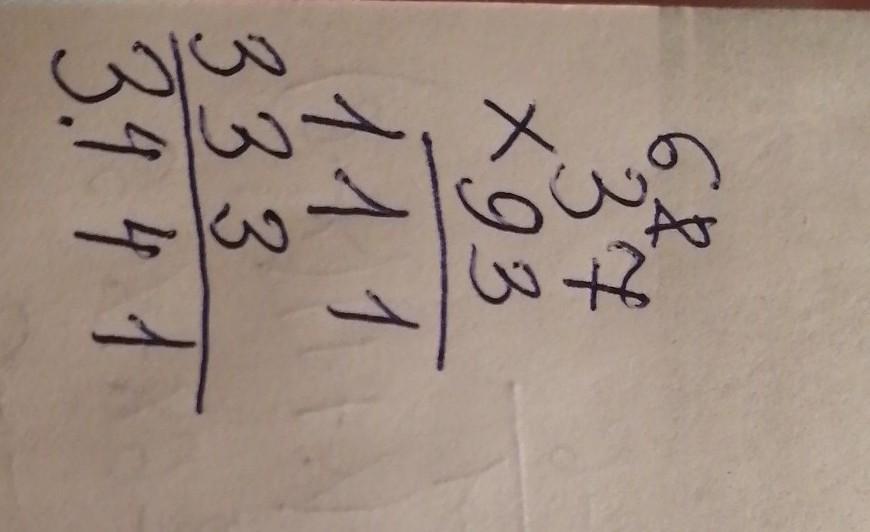 6
37
×93
111
333
3.441